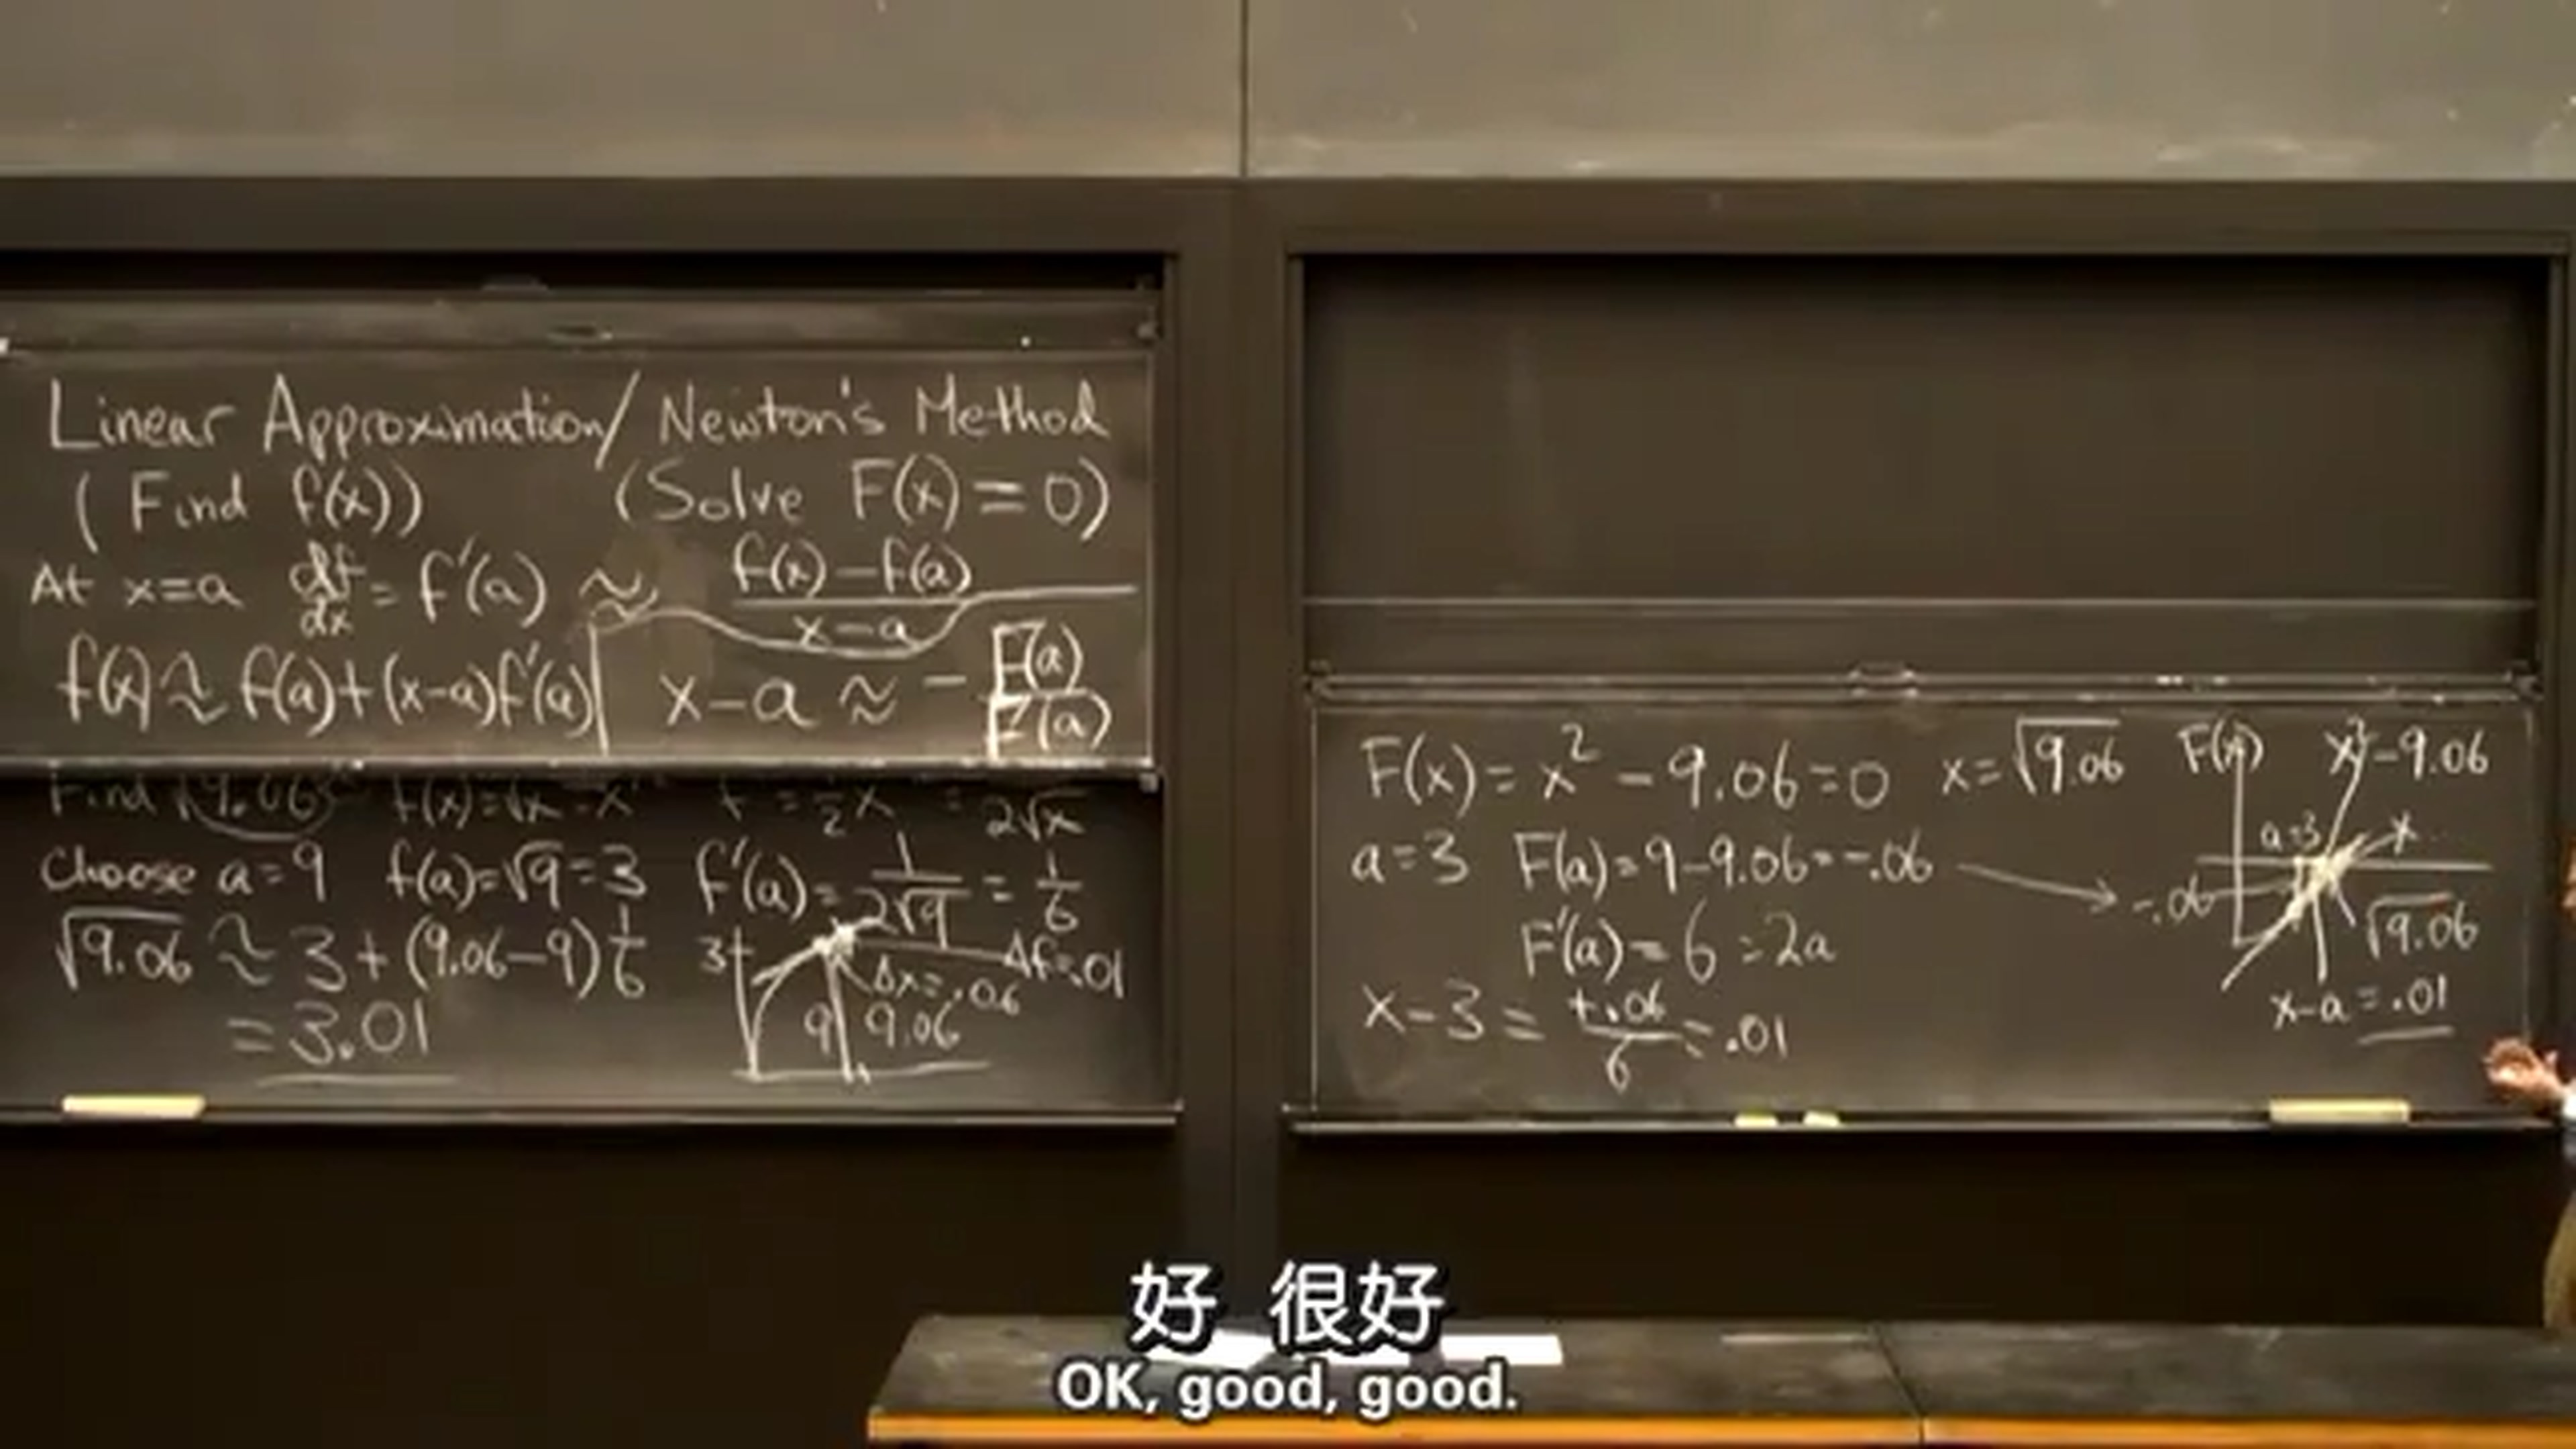 Linear Approximation/ Newton's Method
(Find f(x)) (Solve F(x)=0)
At x=a df/dx = f'(a) ≈ f(x)-f(a)/x-a
f(x) ≈ f(a)+(x-a)f'(a) x-a ≈ - F(a)/F'(a)
Find √9.06 f(x)=√x = x f' = 1/2 x = 1/2√x
Choose a=9 f(a)=√9=3 f'(a)= 1/2√9 = 1/6
√9.06 ≈ 3+(9.06-9)1/6
= 3.01
3 Δf=.01
Δx=.06
9 9.06
F(x)= x² - 9.06=0 x=√9.06
a=3 F(a)=9-9.06=-.06
F'(a)=6=2a
x-3 = +.06/6 = .01
F(x) x²-9.06
a=3 x
-.06
√9.06
x-a=.01
好 很好
OK, good, good.